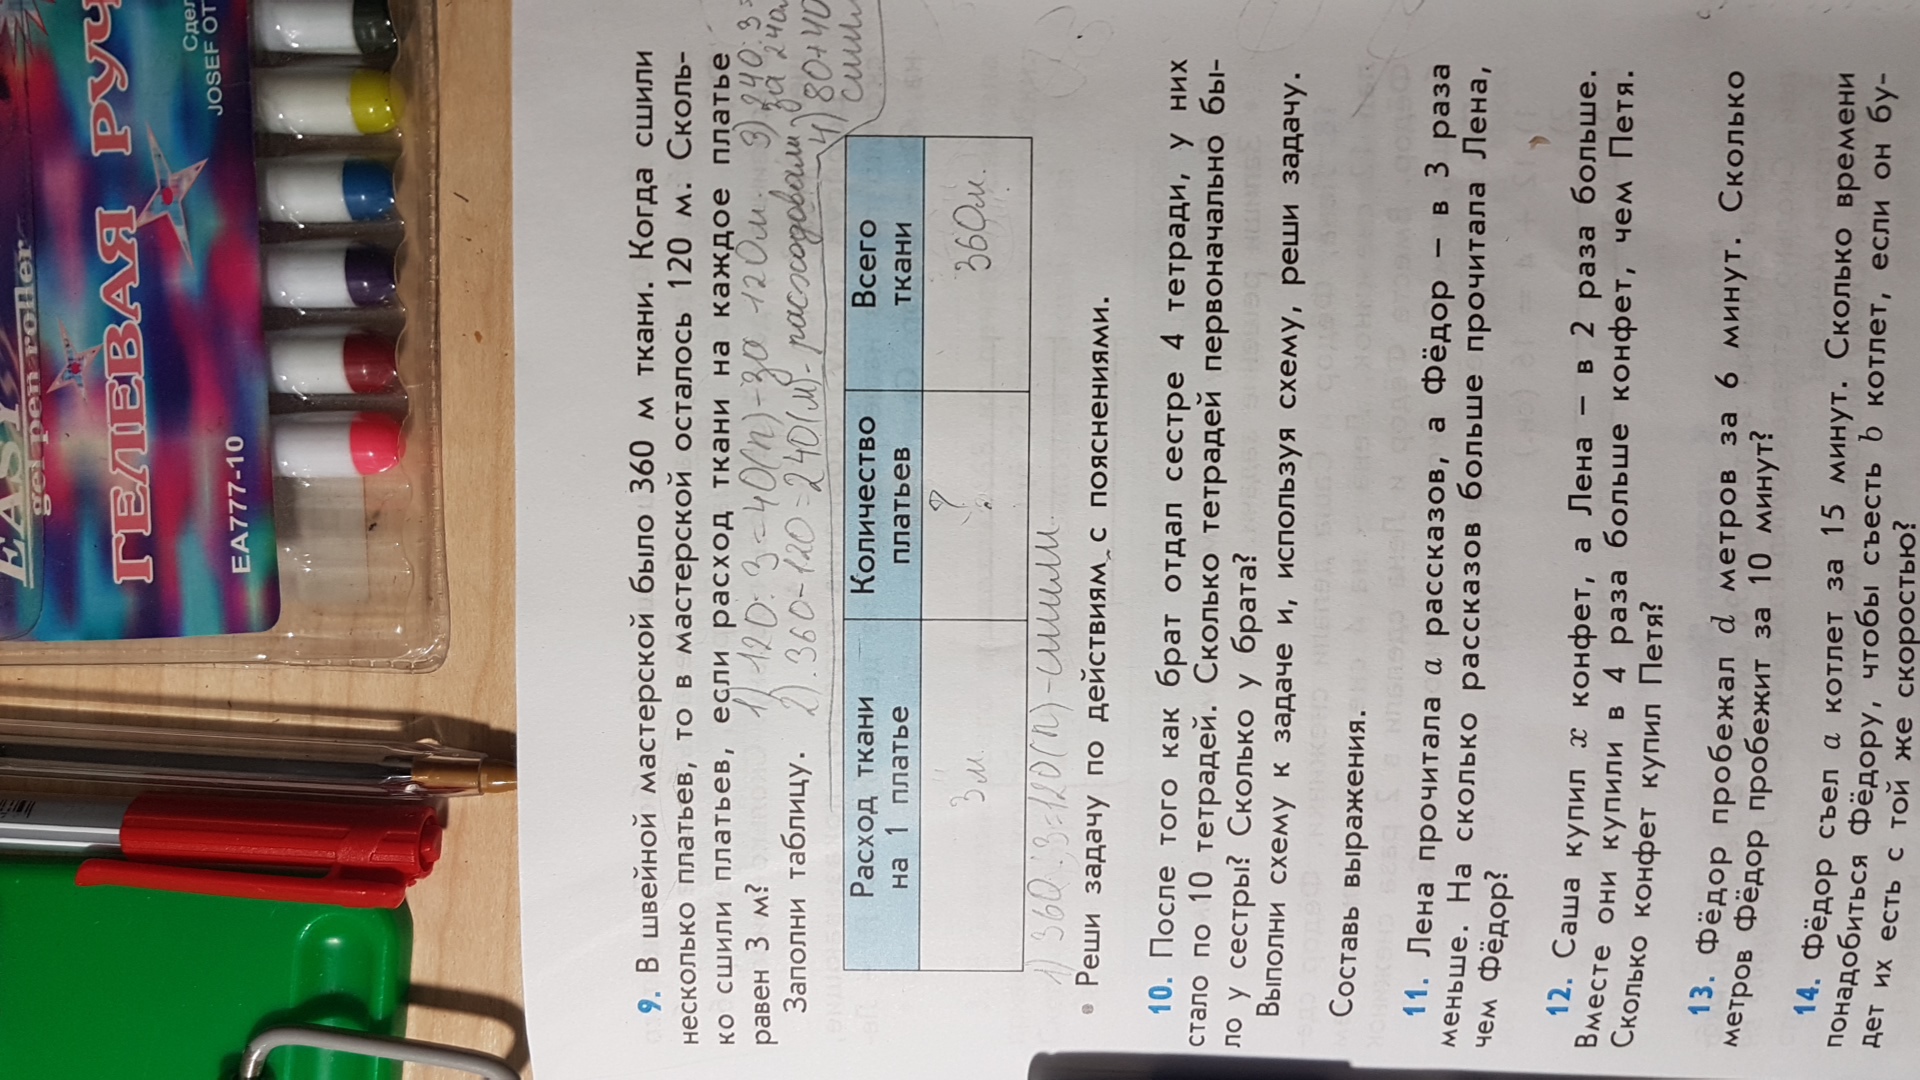 EASY
gel pen roller
ГЕЛЕВАЯ РУЧ
EA777-10
JOSEF OT
9. В швейной мастерской было 360 м ткани. Когда сшили
несколько платьев, то в мастерской осталось 120 м. Сколь-
ко сшили платьев, если расход ткани на каждое платье
равен 3 м?
1) 120:3=40(п)-за 120м. 3) 240:3=
Заполни таблицу.
2) 360-120=240(м)-расходовали 4) 80+40
сшили
Расход ткани на 1 платье
Количество платьев
Всего ткани
3м.
?
360м.
1) 360:3=120(п)-сшили.
• Реши задачу по действиям с пояснениями.
10. После того как брат отдал сестре 4 тетради, у них
стало по 10 тетрадей. Сколько тетрадей первоначально бы-
ло у сестры? Сколько у брата?
Выполни схему к задаче и, используя схему, реши задачу.
Составь выражения.
11. Лена прочитала a рассказов, а Фёдор – в 3 раза
меньше. На сколько рассказов больше прочитала Лена,
чем Фёдор?
12. Саша купил x конфет, а Лена – в 2 раза больше.
Вместе они купили в 4 раза больше конфет, чем Петя.
Сколько конфет купил Петя?
13. Фёдор пробежал d метров за 6 минут. Сколько
метров Фёдор пробежит за 10 минут?
14. Фёдор съел a котлет за 15 минут. Сколько времени
понадобиться Фёдору, чтобы съесть b котлет, если он бу-
дет их есть с той же скоростью?